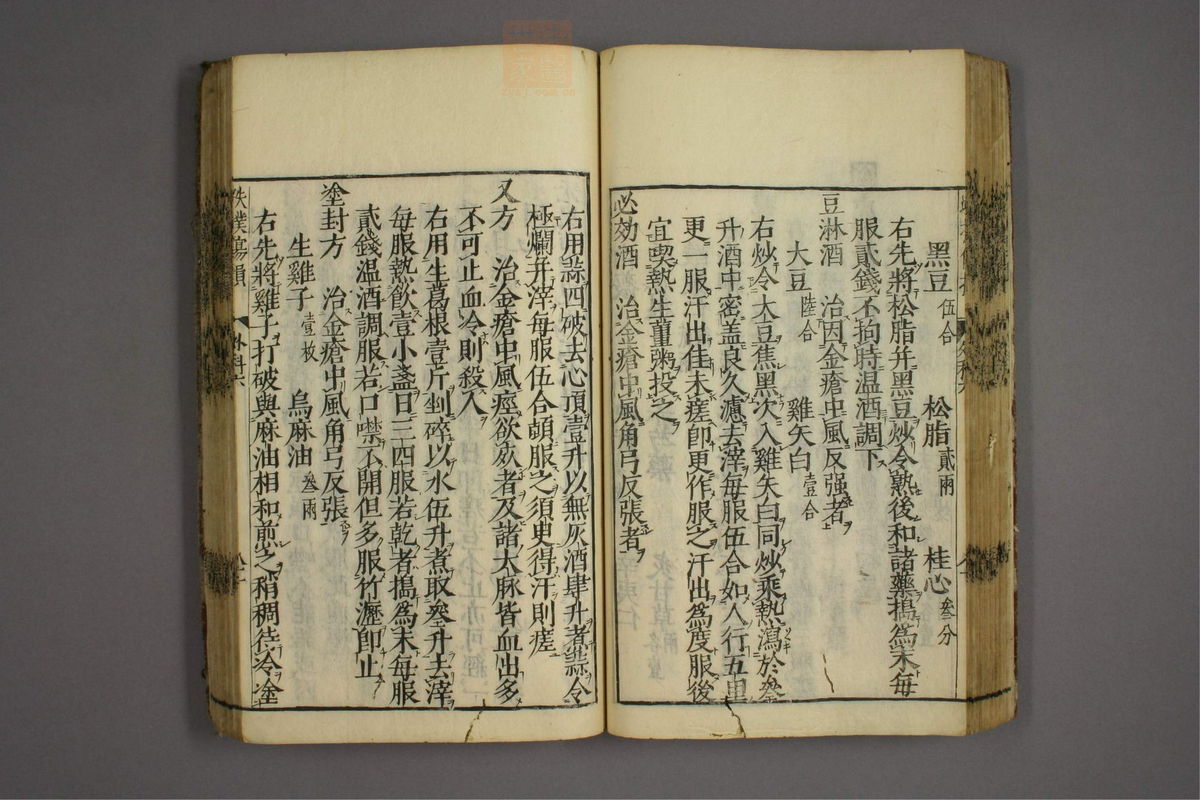 黑豆伍合 松脂貳兩 桂心叄分
右先將松脂并黑豆炒令熟後和諸藥搗為末每
服貳錢不拘時温酒調下
豆淋酒 治因金瘡中風反强者
大豆陸合 雞矢白壹合
右炒令大豆焦黑次入雞矢白同炒乘熱瀉於叄
升酒中密盖良久濾去滓每服伍合如人行五里
更一服汗出佳未瘥即更作服之汗出為度服後
宜喫熱生薑粥投之
必効酒 治金瘡中風角弓反張者
右用蒜四破去心頂壹升以無灰酒肆升煮蒜令
極爛并滓每服伍合頓服之須臾得汗則瘥
又方 治金瘡中風痙欲㱙者及諸大脉皆血出多
不可止血冷則殺人
右用生葛根壹斤剉碎以水伍升煮取叄升去滓
每服熱飲壹小盞日三四服若乾者搗為末每服
貳錢温酒調服若口噤不開但多服竹瀝即止
塗封方 治金瘡中風角弓反張
生雞子壹枚 烏麻油叄兩
右先將雞子打破與麻油相和煎之稍稠待冷塗
外科六